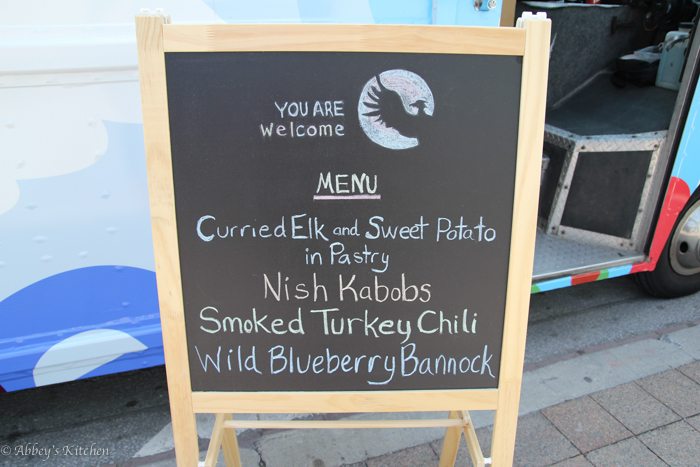 YOU ARE
Welcome
MENU
Curried Elk and Sweet Potato
in Pastry
Nish Kabobs
Smoked Turkey Chili
Wild Blueberry Bannock
© Abbey's Kitchen